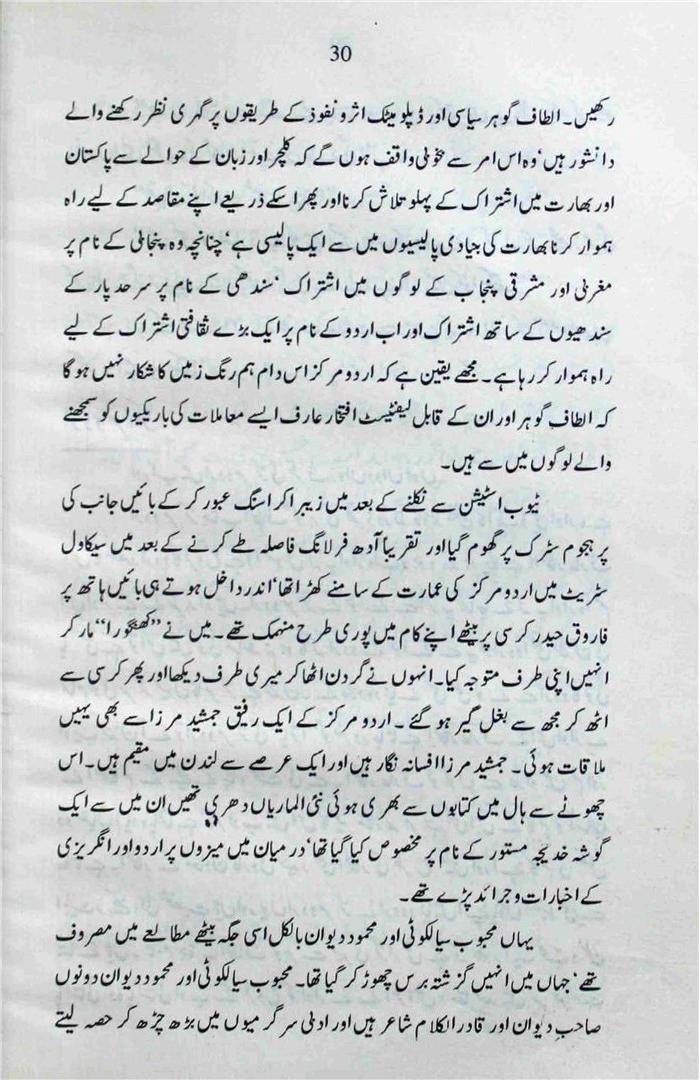 30
رکھیں۔ الطاف گوہر سیاسی اور ڈپلومیٹک اثرونفوذ کے طریقوں پر گہری نظر رکھنے والے
دانشور ہیں‘ وہ اس امر سے بخوبی واقف ہوں گے کہ کلچر اور زبان کے حوالے سے پاکستان
اور بھارت میں اشتراک کے پہلو تلاش کرنا اور پھر اسکے ذریعے اپنے مقاصد کے لیے راہ
ہموار کرنا بھارت کی بنیادی پالیسیوں میں سے ایک پالیسی ہے‘ چنانچہ وہ پنجابی کے نام پر
مغربی اور مشرقی پنجاب کے لوگوں میں اشتراک‘ سندھی کے نام پر سرحد پار کے
سندھیوں کے ساتھ اشتراک اور اب اردو کے نام پر ایک بڑے ثقافتی اشتراک کے لیے
راہ ہموار کر رہا ہے۔ مجھے یقین ہے کہ اردو مرکز اس دام ہم رنگ زمیں کا شکار نہیں ہوگا
کہ الطاف گوہر اور ان کے قابل لیفٹیسٹ افتخار عارف ایسے معاملات کی باریکیوں کو سمجھنے
والے لوگوں میں سے ہیں۔
ٹیوب اسٹیشن سے نکلنے کے بعد میں زیبرا کراسنگ عبور کر کے بائیں جانب کی
پر ہجوم سڑک پر گھوم گیا اور تقریباً آدھ فرلانگ فاصلہ طے کرنے کے بعد میں سیکاول
سٹریٹ میں اردو مرکز کی عمارت کے سامنے کھڑا تھا‘ اندر داخل ہوتے ہی بائیں ہاتھ پر
فاروق حیدر کرسی پر بیٹھے اپنے کام میں پوری طرح منہمک تھے۔ میں نے ’’کھنگورا‘‘ مار کر
انہیں اپنی طرف متوجہ کیا۔ انہوں نے گردن اٹھا کر میری طرف دیکھا اور پھر کرسی سے
اٹھ کر مجھ سے بغل گیر ہو گئے۔ اردو مرکز کے ایک رفیق جمشید مرزا سے بھی یہیں
ملاقات ہوئی۔ جمشید مرزا افسانہ نگار ہیں اور ایک عرصے سے لندن میں مقیم ہیں۔ اس
چھوٹے سے ہال میں کتابوں سے بھری ہوئی نئی الماریاں دھری تھیں ان میں سے ایک
گوشہ خدیجہ مستور کے نام پر مخصوص کیا گیا تھا‘ درمیان میں میزوں پر اردو اور انگریزی
کے اخبارات و جرائد پڑے تھے۔
یہاں محبوب سیالکوٹی اور محمود دیوان بالکل اسی جگہ بیٹھے مطالعے میں مصروف
تھے‘ جہاں میں انہیں گزشتہ برس چھوڑ کر گیا تھا۔ محبوب سیالکوٹی اور محمود دیوان دونوں
صاحبِ دیوان اور قادر الکلام شاعر ہیں اور ادبی سرگرمیوں میں بڑھ چڑھ کر حصہ لیتے